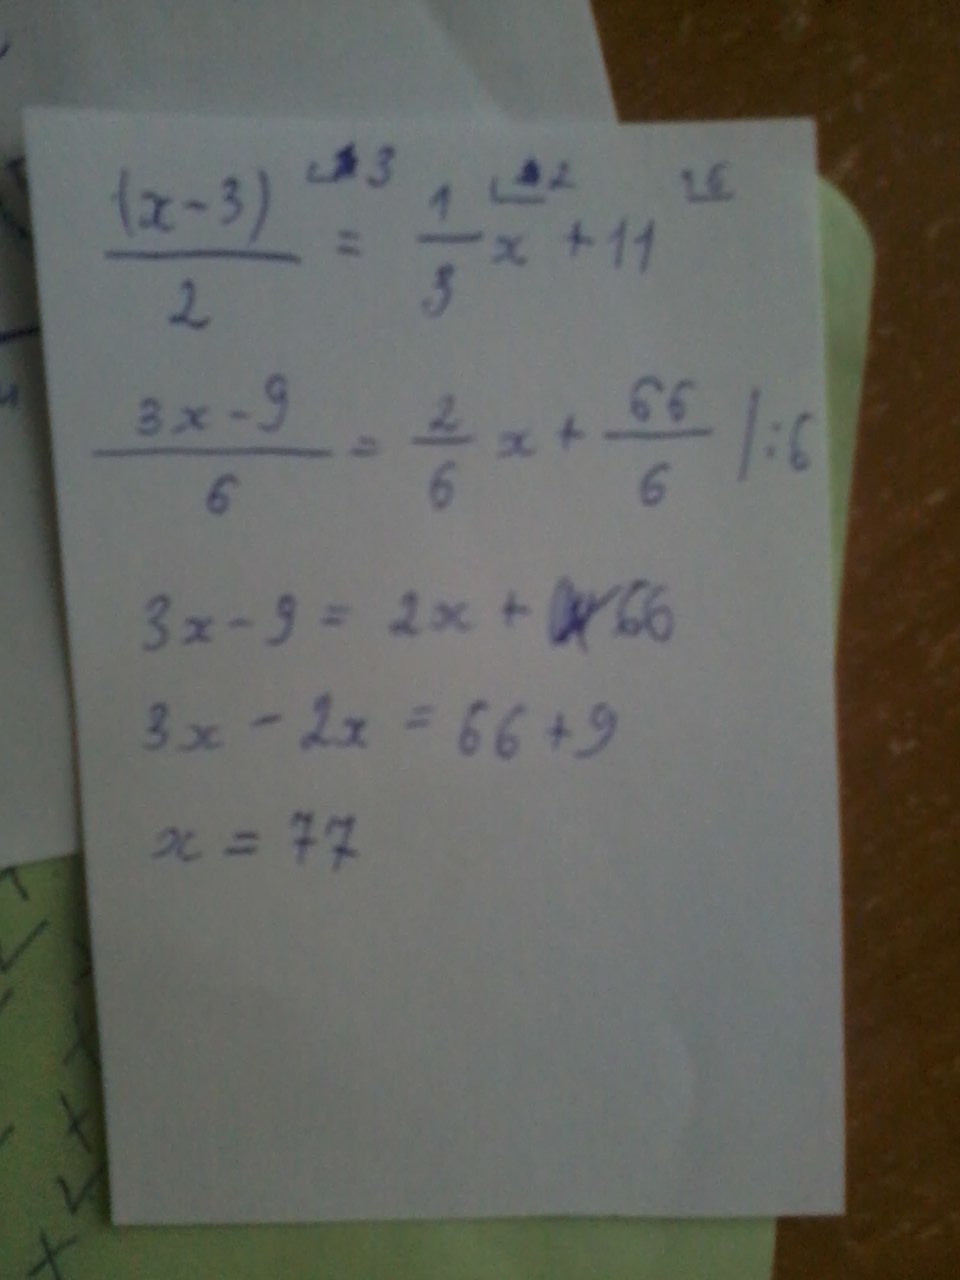 (x-3)/2 ⌟3 = 1/3 ⌟2 x + 11 ⌟6
3x-9/6 = 2/6 x + 66/6 |:6
3x - 9 = 2x + 66
3x - 2x = 66 + 9
x = 77